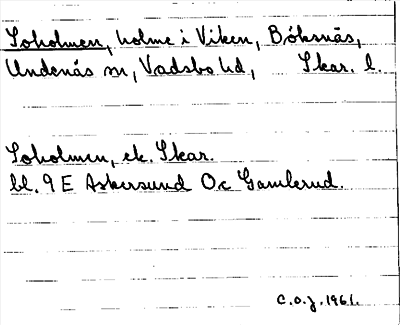 Soholmen, holme i Viken, Bóksnäs,
Undenäs sn, Vadsbo hd, Skar. l.
Soholmen, ek. Skar.
bl. 9 E Askersund Oc Gamlerud.
C.O.J. 1961.